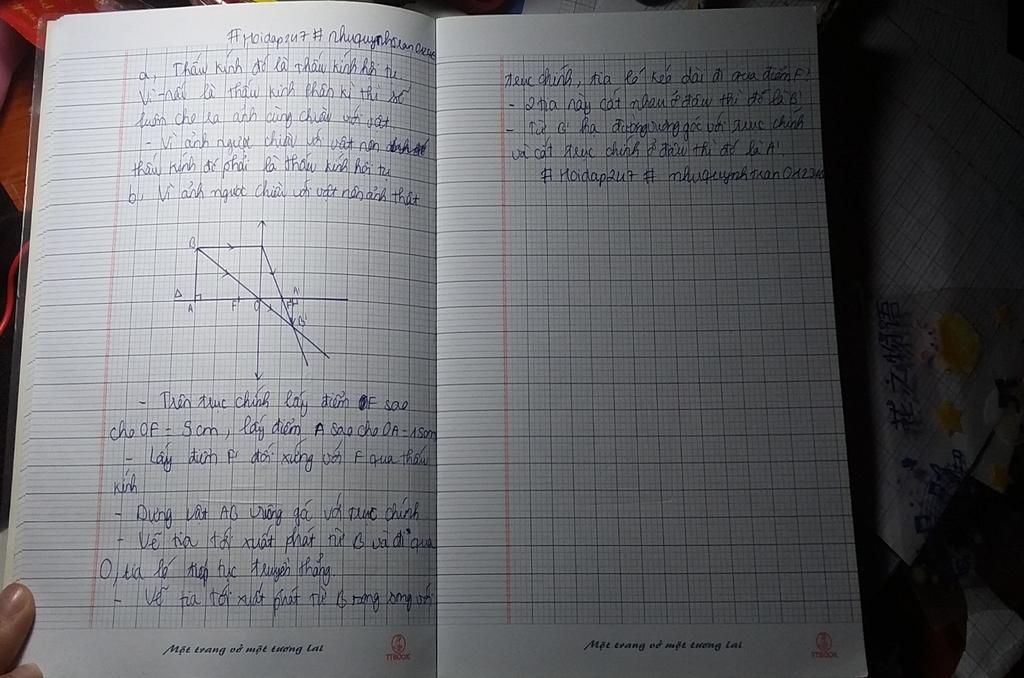 #Hoidap247 # nhuquynhtran01234
a, Thấu kính đó là thấu kính hội tụ
Vì nếu là thấu kính phân kì thì sẽ
luôn cho ra ảnh cùng chiều với vật
- Vì ảnh ngược chiều với vật nên
thấu kính đó phải là thấu kính hội tụ
b, Vì ảnh ngược chiều với vật nên ảnh thật
B
Δ A F O F' A'
B'
- Trên trục chính lấy điểm F sao
cho OF = 5cm, lấy điểm A sao cho OA = 15cm
- Lấy điểm F' đối xứng với F qua thấu
kính
- Dựng vật AB vuông góc với trục chính
- Vẽ tia tới xuất phát từ B và đi qua
O, tia ló tiếp tục truyền thẳng.
- Vẽ tia tới xuất phát từ B song song với
Một trang vở một tương lai
TTBOOK
trục chính, tia ló kéo dài đi qua điểm F'
- 2 tia này cắt nhau ở đâu thì đó là B'
- Từ B' hạ đường vuông góc với trục chính
và cắt trục chính ở đâu thì đó là A'
# Hoidap247 # nhuquynhtran01234
Một trang vở một tương lai
TTBOOK
花之物语